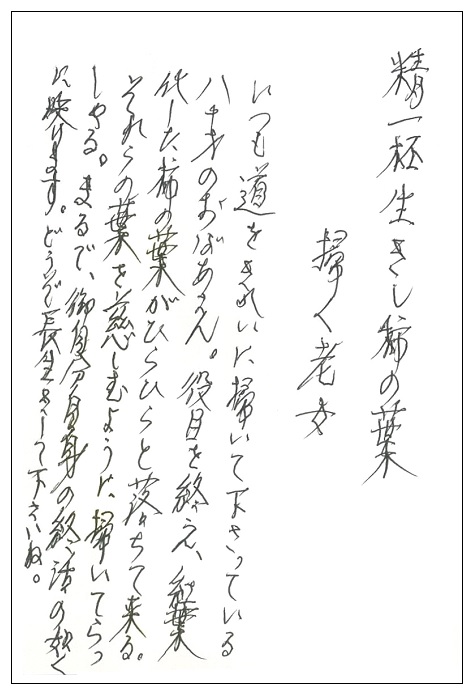 精一杯生きし柿の葉
掃く老女
いつも道をきれいに掃いて下さっている
八十才のおばあさん。役目を終え、紅葉
化した柿の葉がひらひらと落ちて来る。
それらの葉を慈しむように掃いてらっ
しゃる。まるで、御自分自身の終活の如く
に映ります。どうぞ長生きして下さいね。